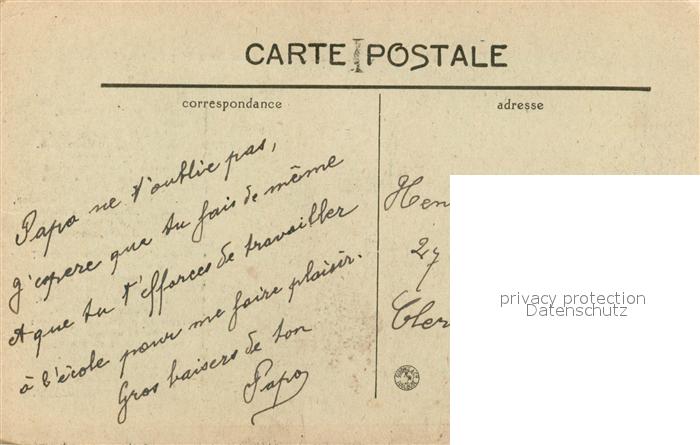 CARTE POSTALE
correspondance
adresse
Papa ne t'oublie pas,
j'espere que tu fais de même
et que tu t'efforces de travailler
à l'école pour me faire plaisir.
Gros baisers de ton
Papa
Hen
27
Cler
privacy protection
Datenschutz